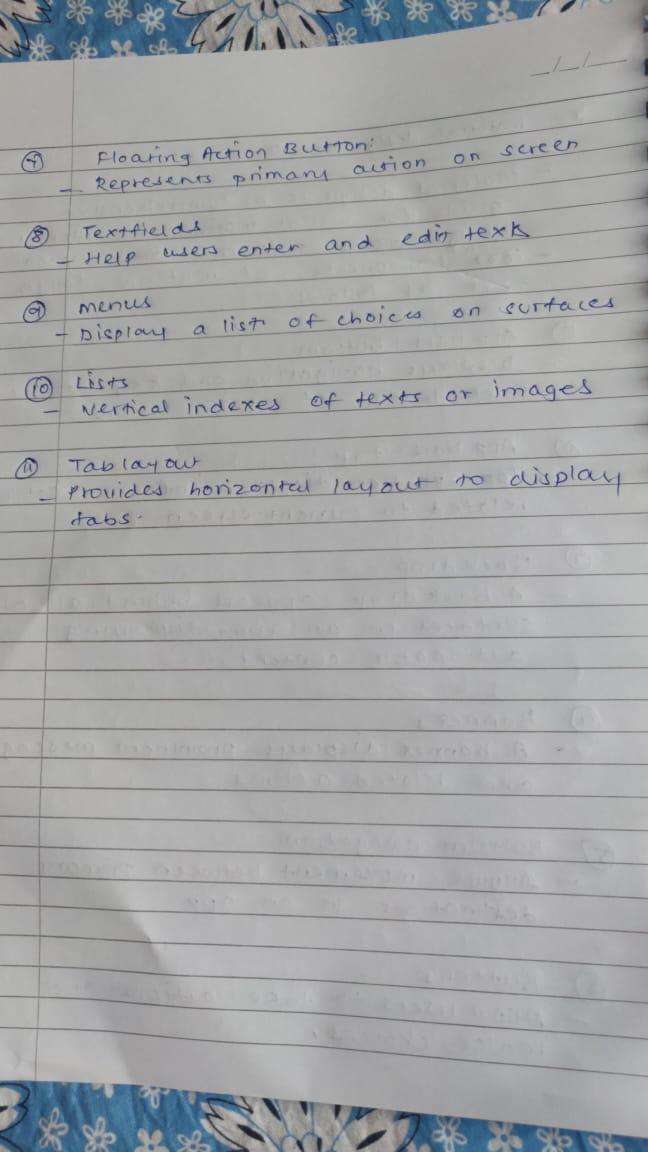 _/_/__
⑦ Floating Action Button:
- Represents primary action on screen
⑧ Textfields
- Help users enter and edit texts
⑨ menus
- Display a list of choices on surfaces
⑩ Lists
- vertical indexes of texts or images
⑪ Tab layout
- Provides horizontal layout to display
tabs.